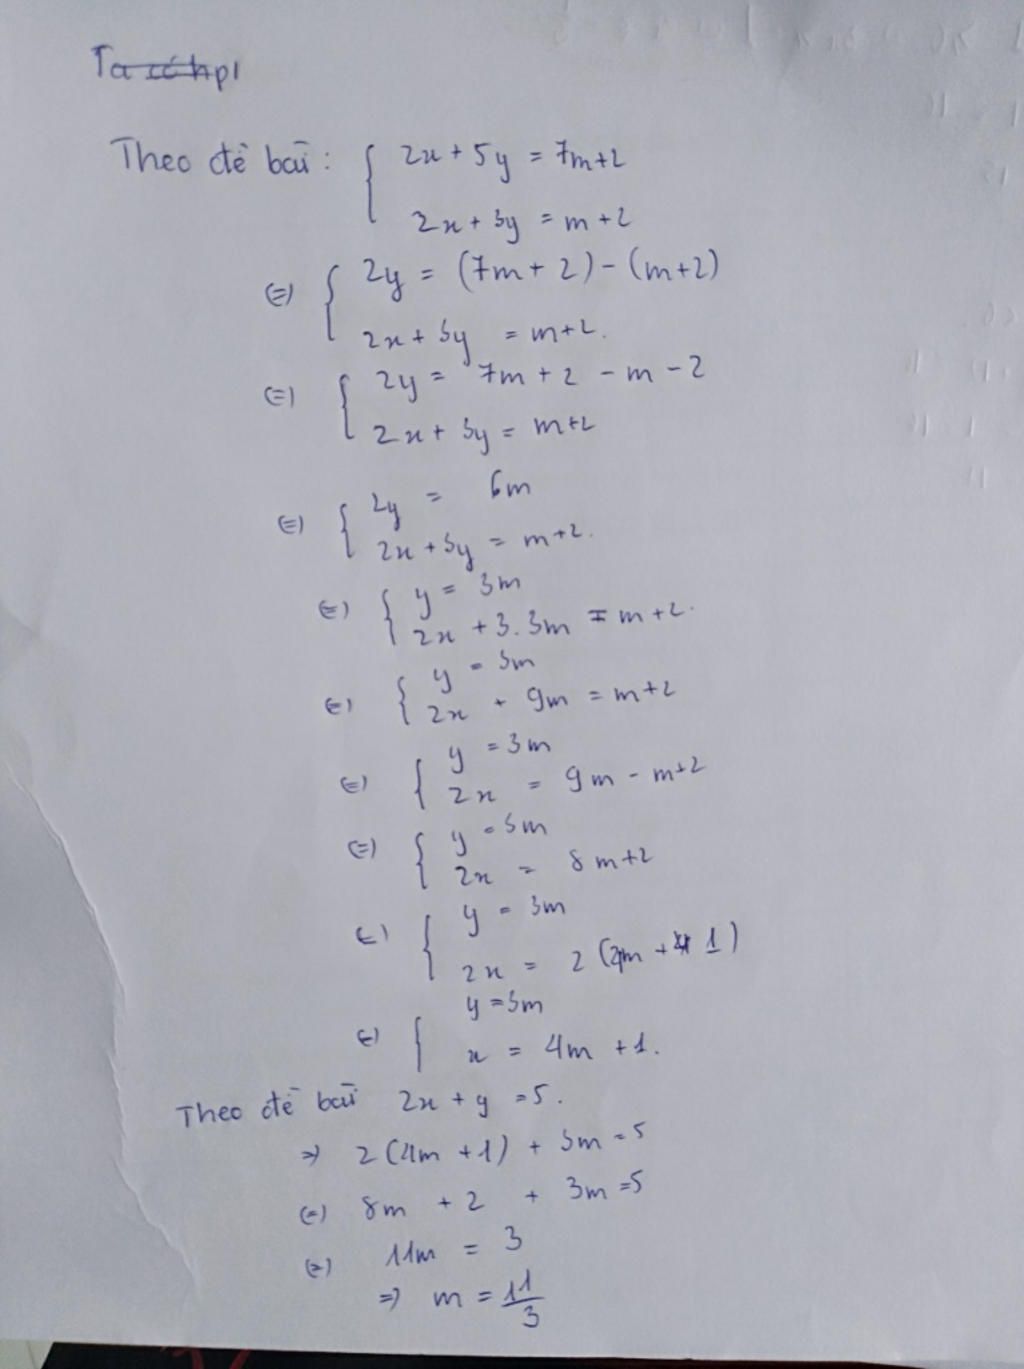 Ta có hpt
Theo đề bài : { 2x + 5y = 7m+2
2x + 3y = m+2
(=) { 2y = (7m + 2) - (m+2)
2x + 3y = m+2.
(=) { 2y = 7m + 2 - m - 2
2x + 3y = m+2
(=) { 2y = 6m
2x + 3y = m+2.
(=) { y = 3m
2x + 3.3m = m+2.
(=) { y = 3m
2x + 9m = m+2
(=) { y = 3m
2x = 9m - m+2
(=) { y = 3m
2x = 8m+2
(=) { y = 3m
2x = 2 (4m + 1)
y = 3m
(=) { x = 4m + 1.
Theo đề bài 2x + y = 5.
=) 2(4m + 1) + 3m = 5
(=) 8m + 2 + 3m = 5
(=) 11m = 3
=) m = 11/3